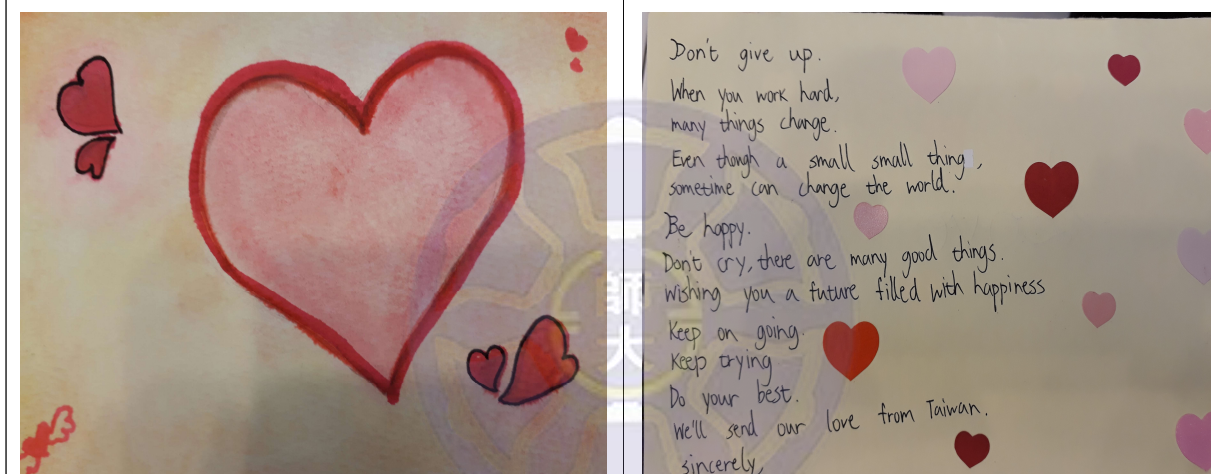 Don't give up.
When you work hard,
many things change.
Even though a small small thing,
sometime can change the world.
Be happy.
Don't cry, there are many good things.
Wishing you a future filled with happiness
Keep on going.
Keep trying
Do your best.
We'll send our love from Taiwan.
sincerely,
師大